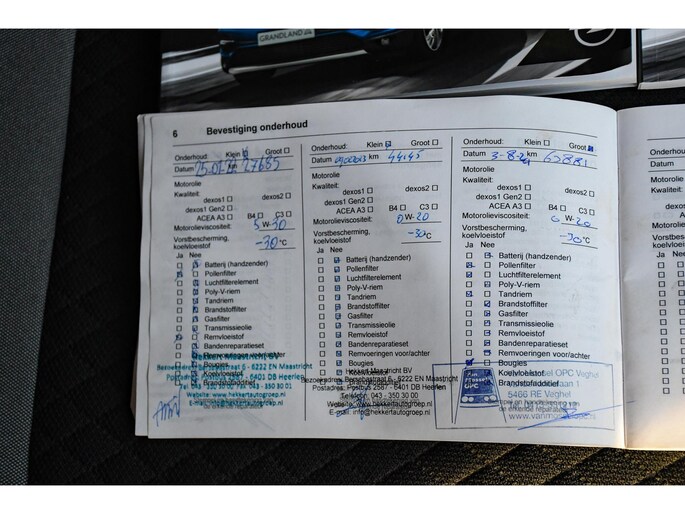 GRANDLAND
6 Bevestiging onderhoud
Onderhoud: Klein Groot
Datum 25-01-22 km 27685
Motorolie
Kwaliteit:
dexos1 dexos2
dexos1 Gen2
ACEA A3 B4 C3
Motorolieviscositeit: 5 W-30
Vorstbescherming,
koelvloeistof -30 °C
Ja Nee
Batterij (handzender)
Pollenfilter
Luchtfilterelement
Poly-V-riem
Tandriem
Brandstoffilter
Gasfilter
Transmissieolie
Remvloeistof
Bandenreparatieset
Remvoeringen voor/achter
Bougies
Koelvloeistof
Brandstofadditief
Hekkert Maastricht BV
6222 EN Maastricht
Postbus 2567 - 6401 DB Heerlen
Tel 043 - 350 30 00
Website: www.hekkertautogroep.nl
E-mail: info@hekkertautogroep.nl
Onderhoud: Klein Groot
Datum km 44145
Motorolie
Kwaliteit:
dexos1 dexos2
dexos1 Gen2
ACEA A3 B4 C3
Motorolieviscositeit: 0 W-20
Vorstbescherming,
koelvloeistof -30 °C
Ja Nee
Batterij (handzender)
Pollenfilter
Luchtfilterelement
Poly-V-riem
Tandriem
Brandstoffilter
Gasfilter
Transmissieolie
Remvloeistof
Bandenreparatieset
Remvoeringen voor/achter
Bougies
Hekkert Maastricht BV
6222 EN Maastricht
Postadres: Postbus 2567 - 6401 DB Heerlen
Telefoon: 043 - 350 30 00
Website: www.hekkertautogroep.nl
E-mail: info@hekkertautogroep.nl
Onderhoud: Klein Groot
Datum 3-8-24 km 65881
Motorolie
Kwaliteit:
dexos1 dexos2
dexos1 Gen2
ACEA A3 B4 C3
Motorolieviscositeit: 0 W-20
Vorstbescherming,
koelvloeistof -30 °C
Ja Nee
Batterij (handzender)
Pollenfilter
Luchtfilterelement
Poly-V-riem
Tandriem
Brandstoffilter
Gasfilter
Transmissieolie
Remvloeistof
Bandenreparatieset
Remvoeringen voor/achter
Bougies
Koelvloeistof
Brandstofadditief
OPC Veghel
5466 RE Veghel